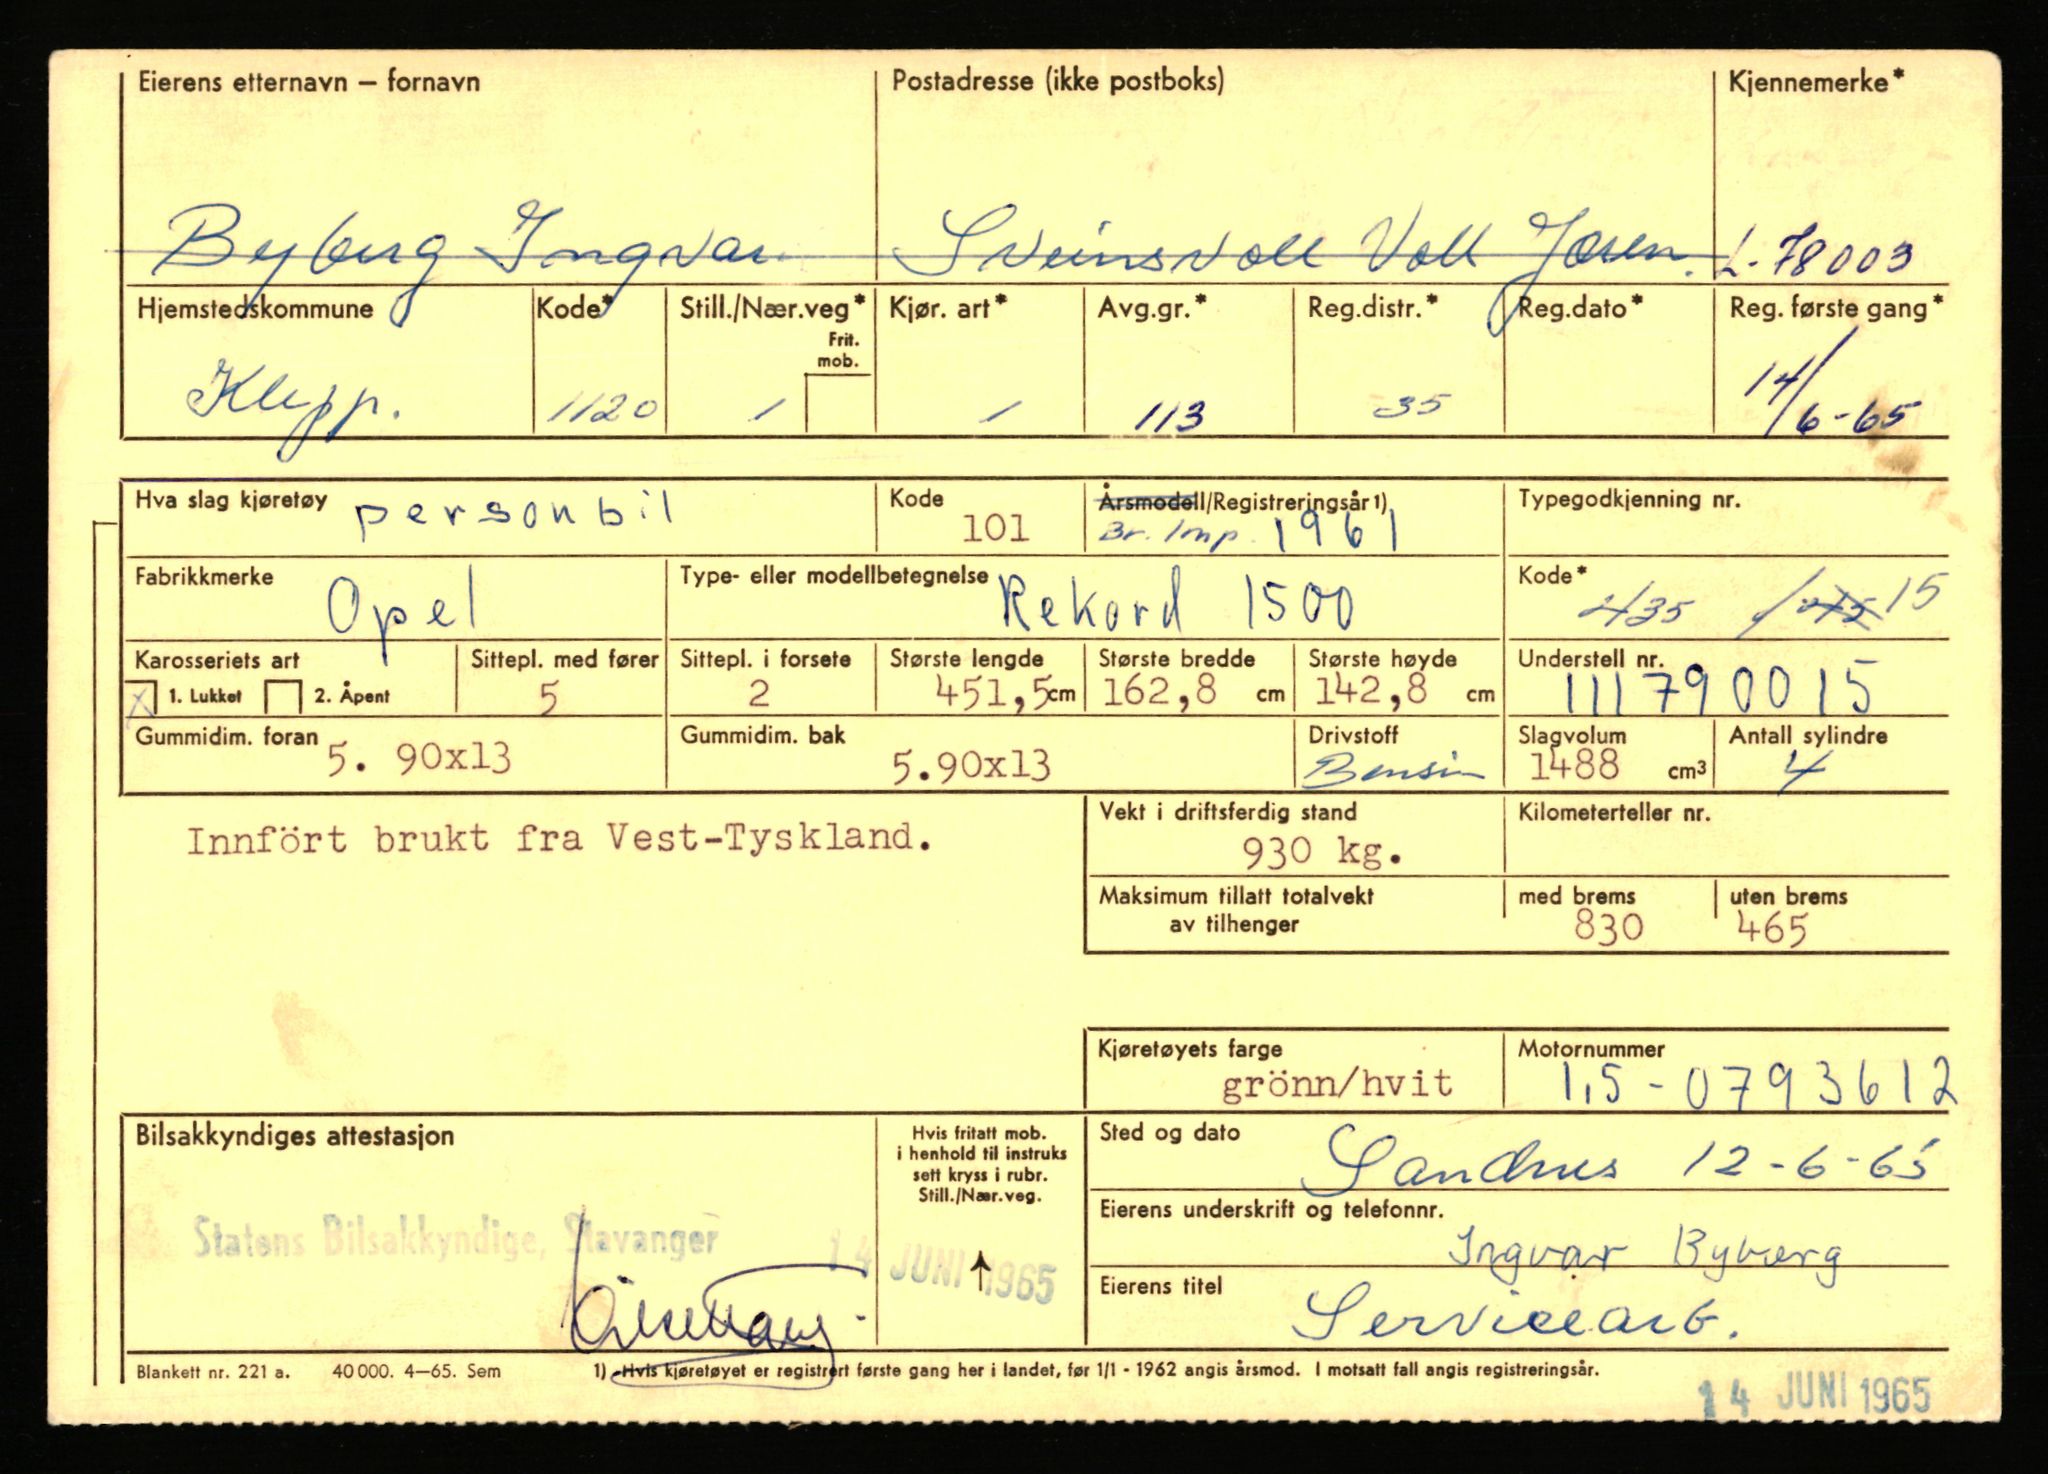 Eierens etternavn – fornavn Postadresse (ikke postboks) Kjennemerke*
Byberg Ingvar. Sveinsvoll Voll Jæren. L-78003
Hjemstedskommune Kode* Still./Nær.veg* Kjør. art* Avg.gr.* Reg.distr.* Reg.dato* Reg. første gang*
Frit.
mob.
Klepp. 1120 1 1 113 35 14/6-65
Hva slag kjøretøy personbil Kode 101 Årsmodell/Registreringsår 1) Br. Imp. 1961 Typegodkjenning nr.
Fabrikkmerke Opel Type- eller modellbetegnelse Rekord 1500 Kode* 435 15
Karosseriets art Sittepl. med fører Sittepl. i forsete Største lengde Største bredde Største høyde Understell nr.
X 1. Lukket 2. Åpent 5 2 451,5 cm 162,8 cm 142,8 cm 111790015
Gummidim. foran 5. 90x13 Gummidim. bak 5.90x13 Drivstoff Bensin Slagvolum 1488 cm3 Antall sylindre 4
Innfört brukt fra Vest-Tyskland.
Vekt i driftsferdig stand 930 kg. Kilometerteller nr.
Maksimum tillatt totalvekt av tilhenger med brems 830 uten brems 465
Kjøretøyets farge grönn/hvit Motornummer 1,5-0793612
Bilsakkyndiges attestasjon
Hvis fritatt mob.
i henhold til instruks
sett kryss i rubr.
Still./Nær.veg.
Sted og dato Sandnes 12-6-65
Statens Bilsakkyndige, Stavanger 14 JUNI 1965
Eierens underskrift og telefonnr.
Ingvar Byberg
Eierens titel Servicearb.
Blankett nr. 221 a. 40 000. 4–65. Sem 1) Hvis kjøretøyet er registrert første gang her i landet, før 1/1 - 1962 angis årsmod. I motsatt fall angis registreringsår.
14 JUNI 1965